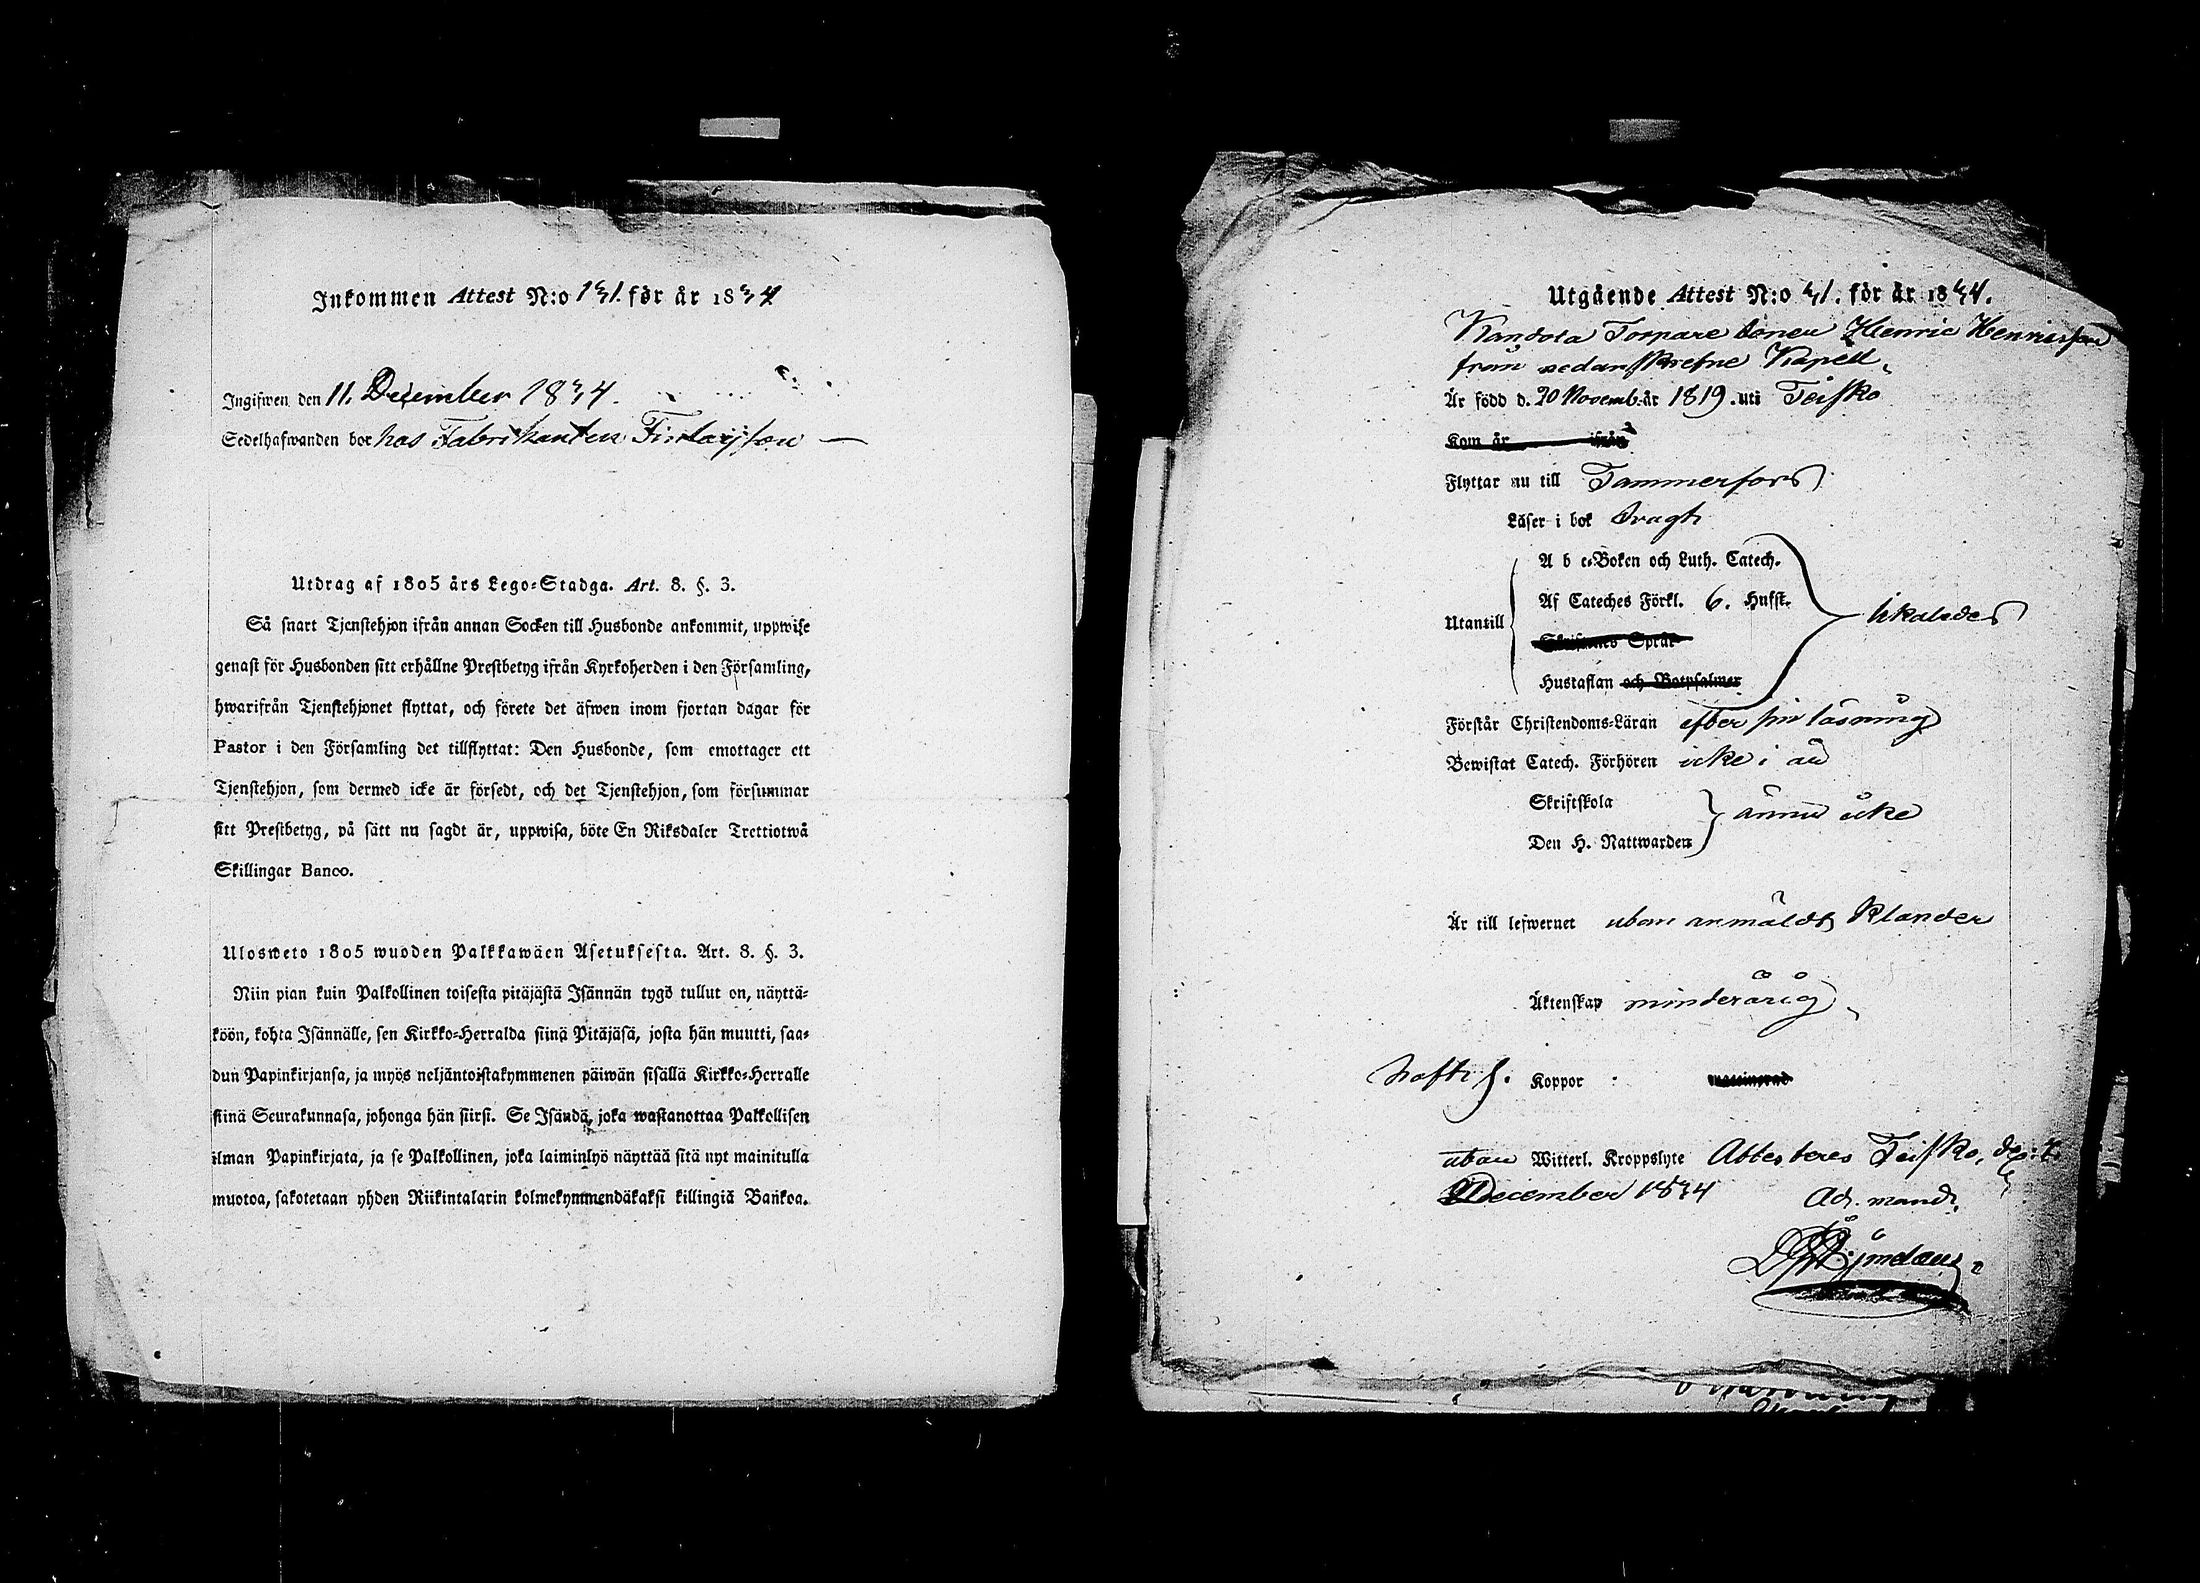 Inkommen Attest N:o 131. för år 1834
Ingifwen den 11. December 1834.
Sedelhafwanden bor hos Fabrikanten Finlaijson —
Utdrag af 1805 års Lego-Stadga. Art. 8. §. 3.
Så snart Tjenstehjon ifrån annan Socken till Husbonde ankommit, uppwise
genast för Husbonden sitt erhållne Prestbetyg ifrån Kyrkoherden i den Församling,
hwarifrån Tjenstehjonet flyttat, och förete det äfwen inom fjortan dagar för
Pastor i den Församling det tillflyttat: Den Husbonde, som emottager ett
Tjenstehjon, som dermed icke är försedt, och det Tjenstehjon, som försummar
sitt Prestbetyg, på sätt nu sagdt är, uppwisa, böte En Riksdaler Trettiotwå
Skillingar Banco.
Ulosweto 1805 wuoden Palkkawäen Asetuksesta. Art. 8. §. 3.
Niin pian kuin Palkollinen toisesta pitäjästä Isännän tygö tullut on, näyttä-
köön, kohta Isännälle, sen Kirkko-Herralda siinä Pitäjäsä, josta hän muutti, saa-
dun Papinkirjansa, ja myös neljäntoistakymmenen päiwän sisällä Kirkko-Herralle
siinä Seurakunnasa, johonga hän siirsi. Se Isändä, joka wastanottaa Palkollisen
ilman Papinkirjata, ja se Palkollinen, joka laiminlyö näyttää sitä nyt mainitulla
muotoa, sakotetaan yhden Riikintalarin kolmekymmendäkaksi killingiä Bankoa.
Utgående Attest N:o 31. för år 1834.
Kandola Torpare Sonen Henric Henricsson
från nedanskrefne Kapell
Är född d. 20 Novemb. år 1819. uti Teisko
Kom år ifrån
Flyttar nu till Tammerfors
Läser i bok svagt
A b c-Boken och Luth. Catech.
Af Cateches Förkl. 6. Hufst.
Utantill likaledes
Hustaflan och Botpsalmer
Förstår Christendoms-Läran efter sin läsning
Bewistat Catech. Förhören icke i år
Skriftskola
ännu icke
Den H. Nattwarden
Är till lefwernet utan anmäldt klander
Äktenskap minderårig
haft s. Koppor
utan Witterl. Kroppslyte Attesteras Teisko, de
December 1834 Ad. mand.